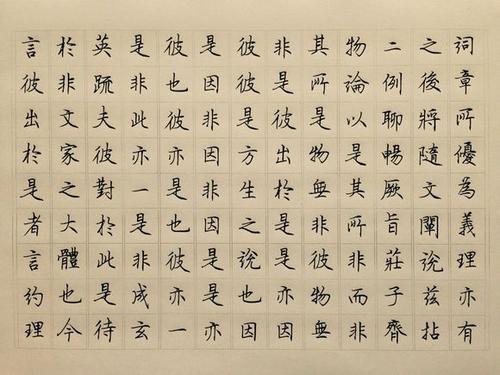 詞章所優為義理亦有
之後將隨文闡說茲拈
二例聊暢厥旨莊子齊
物論以是其所非而非
其所是物無非彼物無
非是彼出於是是亦因
彼彼是方生之說也因
是因非因非因是是亦
彼也彼亦是也彼亦一
是非此亦一是非成玄
英疏夫彼對於此是待
於非文家之大體也今
言彼出於是者言約理